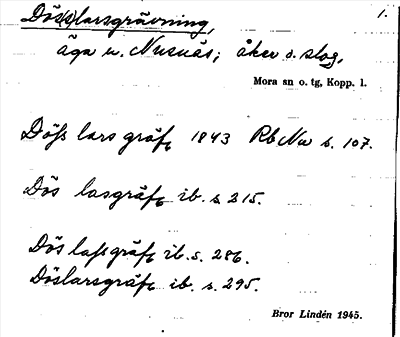 Dös(s)larsgrävning, 1.
äga u. Nusnäs; åker o. slog,
Mora sn o. tg, Kopp. l.
Döss lars gräf 1843 Rb Nu s. 107.
Dös lasgräf ib. s 215.
Dös lassgräf ib. s. 286.
Döslarsgräf ib. s. 295.
Bror Lindén 1945.